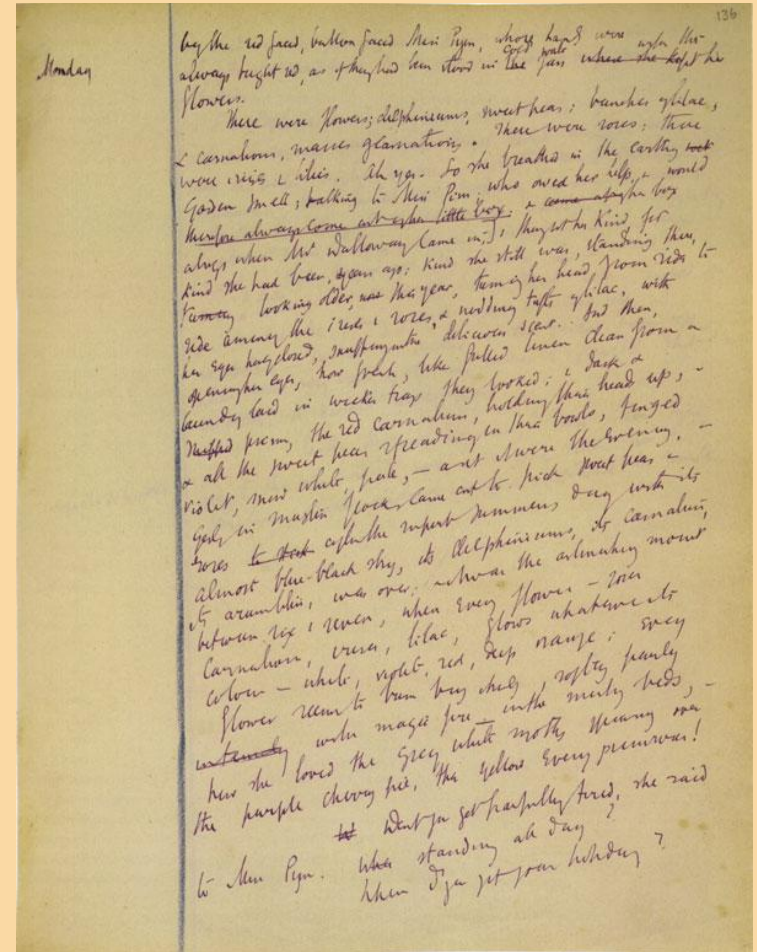 136
Monday
by the red faced, button faced Miss Pym, whose hands were
always bright red, as if they had been stood in cold water with the
the jars where she kept her
flowers.
There were flowers; delphiniums, sweet peas; bunches of lilac,
& carnations, masses of carnations. There were roses; there
were irises & lilies. Ah yes. So she breathed in the earthy
garden smell; talking to Miss Pym, who owed her help, & would
therefore always come out of her little box. & came of her box
always when Mrs Dalloway came in; & thought her kind for
kind she had been, years ago; kind she still was, standing there,
looking older, this year, turning her head from side to
side among the irises & roses, & nodding tufts of lilac, with
her eyes half closed, snuffing in the delicious scent. And then,
opening her eyes, how fresh, like frilled linen clean from a
laundry laid in wicker trays they looked; & dark &
prim, the red carnations, holding their heads up, -
& all the sweet peas spreading in their bowls, tinged
violet, snow white, pale, - as if it were the evening, -
girls in muslin frocks came out to pick sweet peas &
roses after the superb summers day with its
almost blue-black sky, its delphiniums, its carnations,
its arum lilies, was over; & it was the moment
between six & seven, when every flower - roses
carnations, irises, lilac, glows whatever its
colour - white, violet, red, deep orange; every
flower seems to burn by itself, softly purely
intensely with magic fire in the misty beds, -
how she loved the grey white moths spinning over
the purple cherry pie, the yellow evening primroses!
Dont you get frightfully tired, she said
to Miss Pym. standing all day?
When d'you get your holiday?